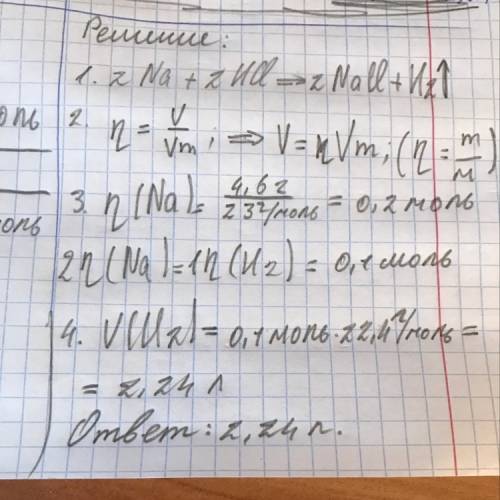 Решение:
1. 2 Na + 2 HCl ⇒ 2 NaCl + H2↑
оль
2. η = V/Vm ; ⇒ V = ηVm ; (η = m/M)
3. η(Na) = 4,6 г / 23 г/моль = 0,2 моль
оль
2η(Na) = 1η(H2) = 0,1 моль
4. V(H2) = 0,1 моль · 22,4 л/моль =
= 2,24 л
Ответ: 2,24 л.